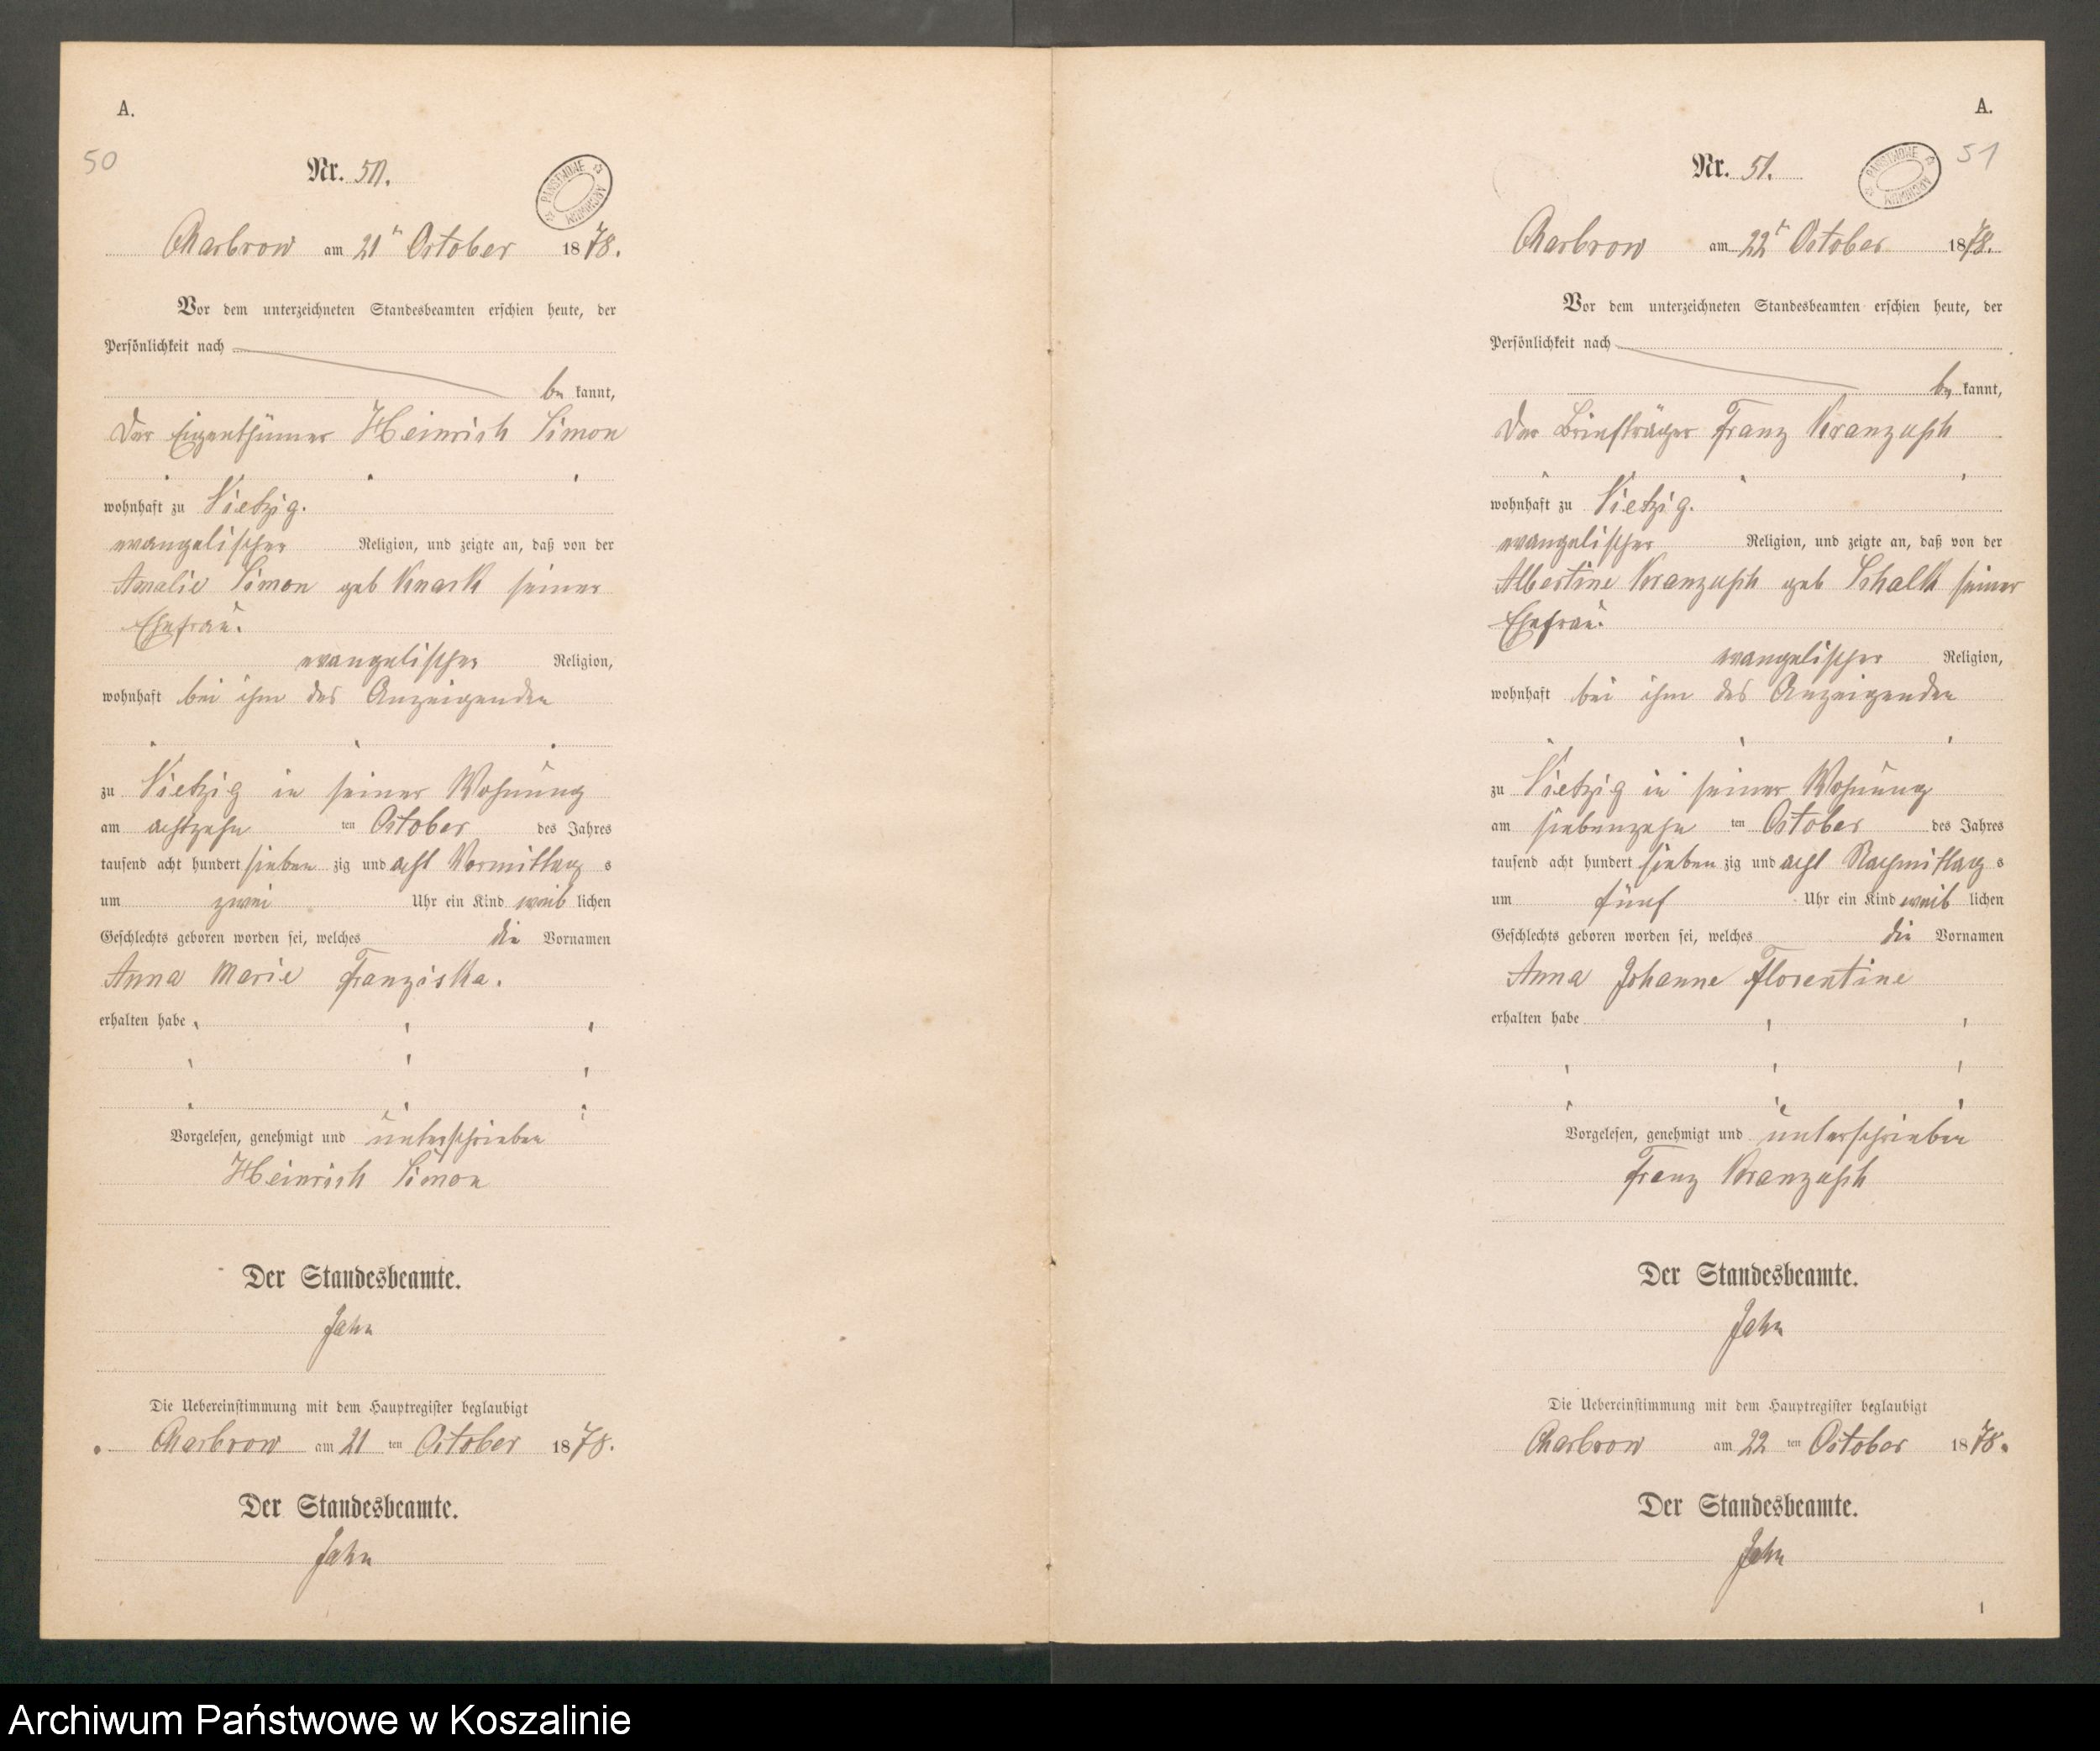 A.
50
Nr. 50.
PAŃSTWOWE ARCHIWUM
Charbrow am 21t October 1878.
Vor dem unterzeichneten Standesbeamten erschien heute, der
Persönlichkeit nach
be kannt,
der Eigenthümer Heinrich Simon
wohnhaft zu Vietzig.
evangelischer Religion, und zeigte an, daß von der
Amalie Simon geb Knack seiner
Ehefrau.
evangelischer Religion,
wohnhaft bei ihm des Anzeigenden
zu Vietzig in seiner Wohnung
am achtzehn ten October des Jahres
tausend acht hundert sieben zig und acht Vormittag s
um zwei Uhr ein Kind weib lichen
Geschlechts geboren worden sei, welches die Vornamen
Anna Marie Franziska.
erhalten habe
Vorgelesen, genehmigt und unterschrieben
Heinrich Simon
Der Standesbeamte.
Jahn
Die Uebereinstimmung mit dem Hauptregister beglaubigt
Charbrow am 21 ten October 1878.
Der Standesbeamte.
Jahn
A.
51
Nr. 51.
PAŃSTWOWE ARCHIWUM
Charbrow am 22t October 1878.
Vor dem unterzeichneten Standesbeamten erschien heute, der
Persönlichkeit nach
be kannt,
der Briefträger Franz Kranzusch
wohnhaft zu Vietzig.
evangelischer Religion, und zeigte an, daß von der
Albertine Kranzusch geb Schalk seiner
Ehefrau.
evangelischer Religion,
wohnhaft bei ihm des Anzeigenden
zu Vietzig in seiner Wohnung
am siebenzehn ten October des Jahres
tausend acht hundert sieben zig und acht Nachmittag s
um fünf Uhr ein Kind weib lichen
Geschlechts geboren worden sei, welches die Vornamen
Anna Johanne Florentine
erhalten habe
Vorgelesen, genehmigt und unterschrieben
Franz Kranzusch
Der Standesbeamte.
Jahn
Die Uebereinstimmung mit dem Hauptregister beglaubigt
Charbrow am 22 ten October 1878.
Der Standesbeamte.
Jahn
Archiwum Państwowe w Koszalinie